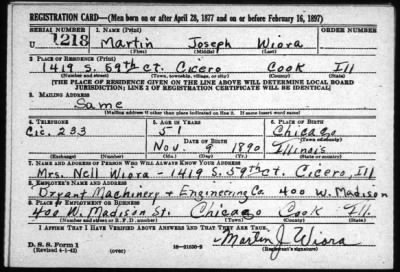 REGISTRATION CARD—(Men born on or after April 28, 1877 and on or before February 16, 1897)
SERIAL NUMBER 1. NAME (Print) ORDER NUMBER
U 1213 Martin Joseph Wiora
(First) (Middle) (Last)
2. PLACE OF RESIDENCE (Print)
1419 S. 59th Ct. Cicero Cook Ill
(Number and street) (Town, township, village, or city) (County) (State)
[THE PLACE OF RESIDENCE GIVEN ON THE LINE ABOVE WILL DETERMINE LOCAL BOARD
JURISDICTION; LINE 2 OF REGISTRATION CERTIFICATE WILL BE IDENTICAL]
3. MAILING ADDRESS
Same
[Mailing address if other than place indicated on line 2. If same insert word same]
4. TELEPHONE 5. AGE IN YEARS 6. PLACE OF BIRTH
Cic. 233 51 Chicago
DATE OF BIRTH (Town or county)
Nov. 9 1890 Illinois
(Exchange) (Number) (Mo.) (Day) (Yr.) (State or country)
7. NAME AND ADDRESS OF PERSON WHO WILL ALWAYS KNOW YOUR ADDRESS
Mrs. Nell Wiora - 1419 S. 59th Ct. Cicero, Ill
8. EMPLOYER'S NAME AND ADDRESS
Bryant Machinery & Engineering Co. 400 W. Madison
9. PLACE OF EMPLOYMENT OR BUSINESS
400 W. Madison St. Chicago Cook Ill.
(Number and street or R. F. D. number) (Town) (County) (State)
I AFFIRM THAT I HAVE VERIFIED ABOVE ANSWERS AND THAT THEY ARE TRUE.
Martin J. Wiora
D. S. S. Form 1 (Registrant's signature)
(Revised 4-1-42) (over) 16—21630-2